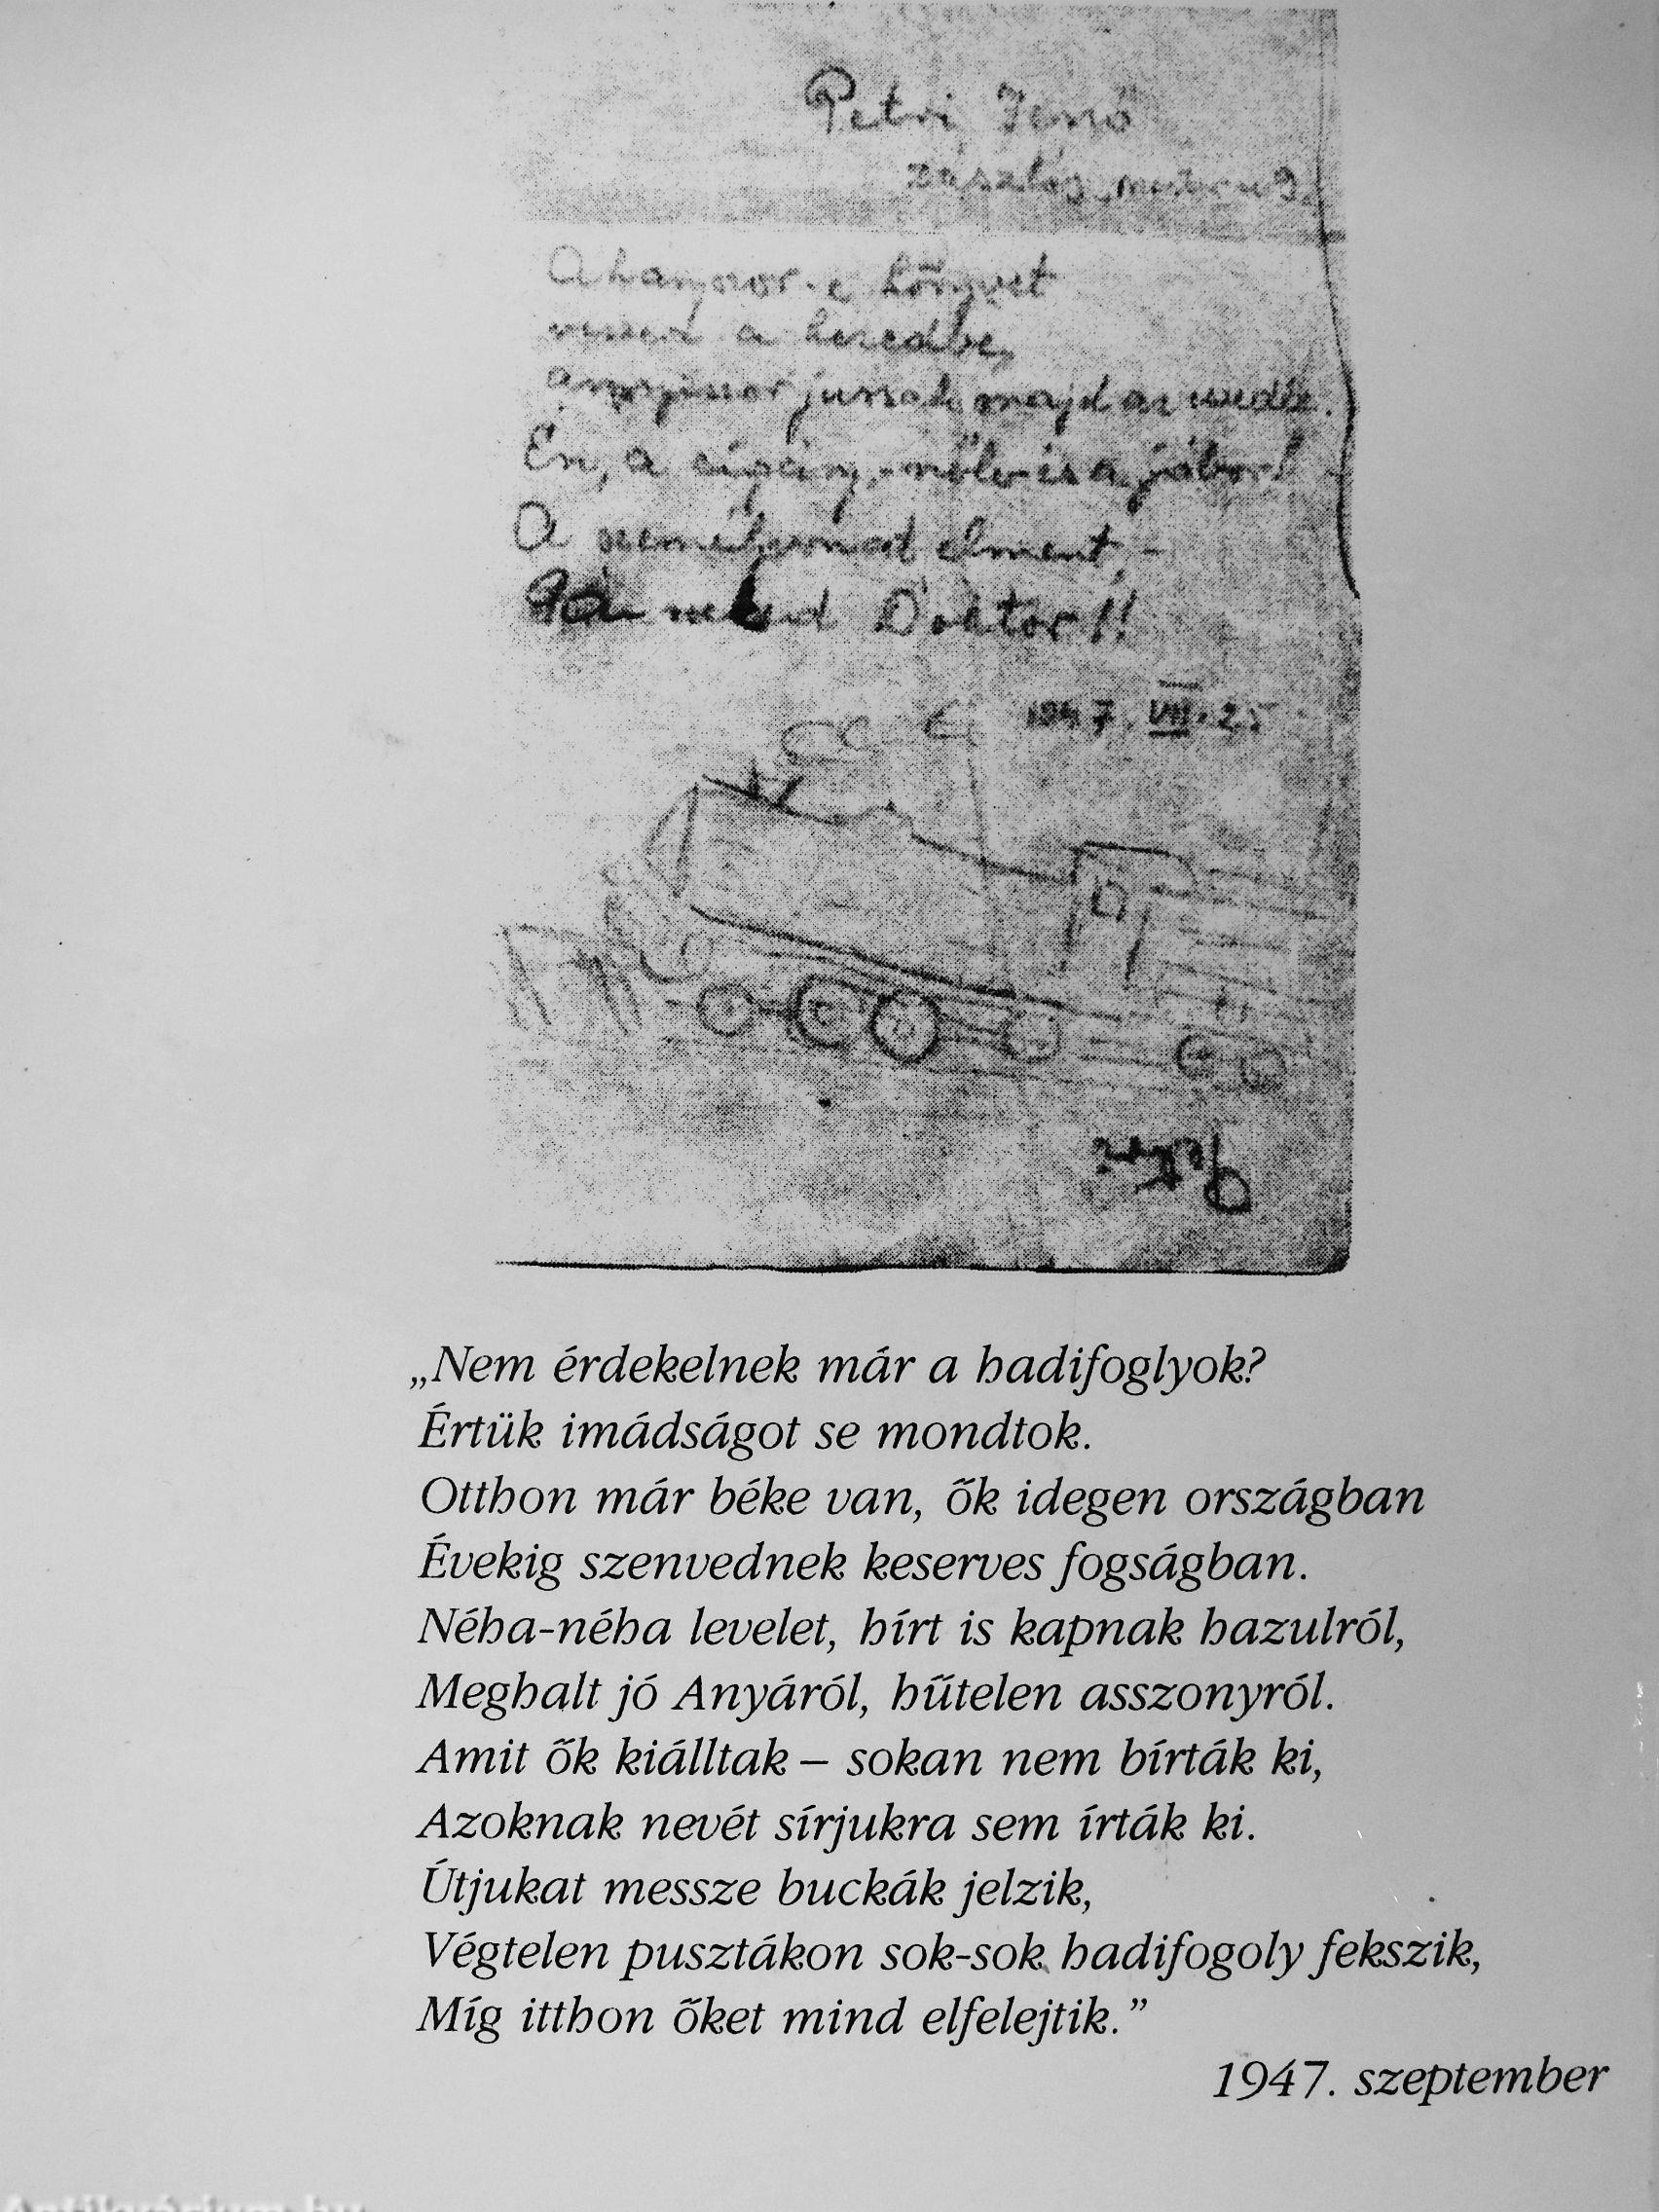 Petri Jenő
Ahányszor e könyvet
veszed a kezedbe,
annyiszor jussak majd az eszedbe.
Én, a cigány,
A szemed elment,-
Doktor!!
1947. VIII. 25
Petri
„Nem érdekelnek már a hadifoglyok?
Értük imádságot se mondtok.
Otthon már béke van, ők idegen országban
Évekig szenvednek keserves fogságban.
Néha-néha levelet, hírt is kapnak hazulról,
Meghalt jó Anyáról, hűtelen asszonyról.
Amit ők kiálltak – sokan nem bírták ki,
Azoknak nevét sírjukra sem írták ki.
Útjukat messze buckák jelzik,
Végtelen pusztákon sok-sok hadifogoly fekszik,
Míg itthon őket mind elfelejtik.”
1947. szeptember